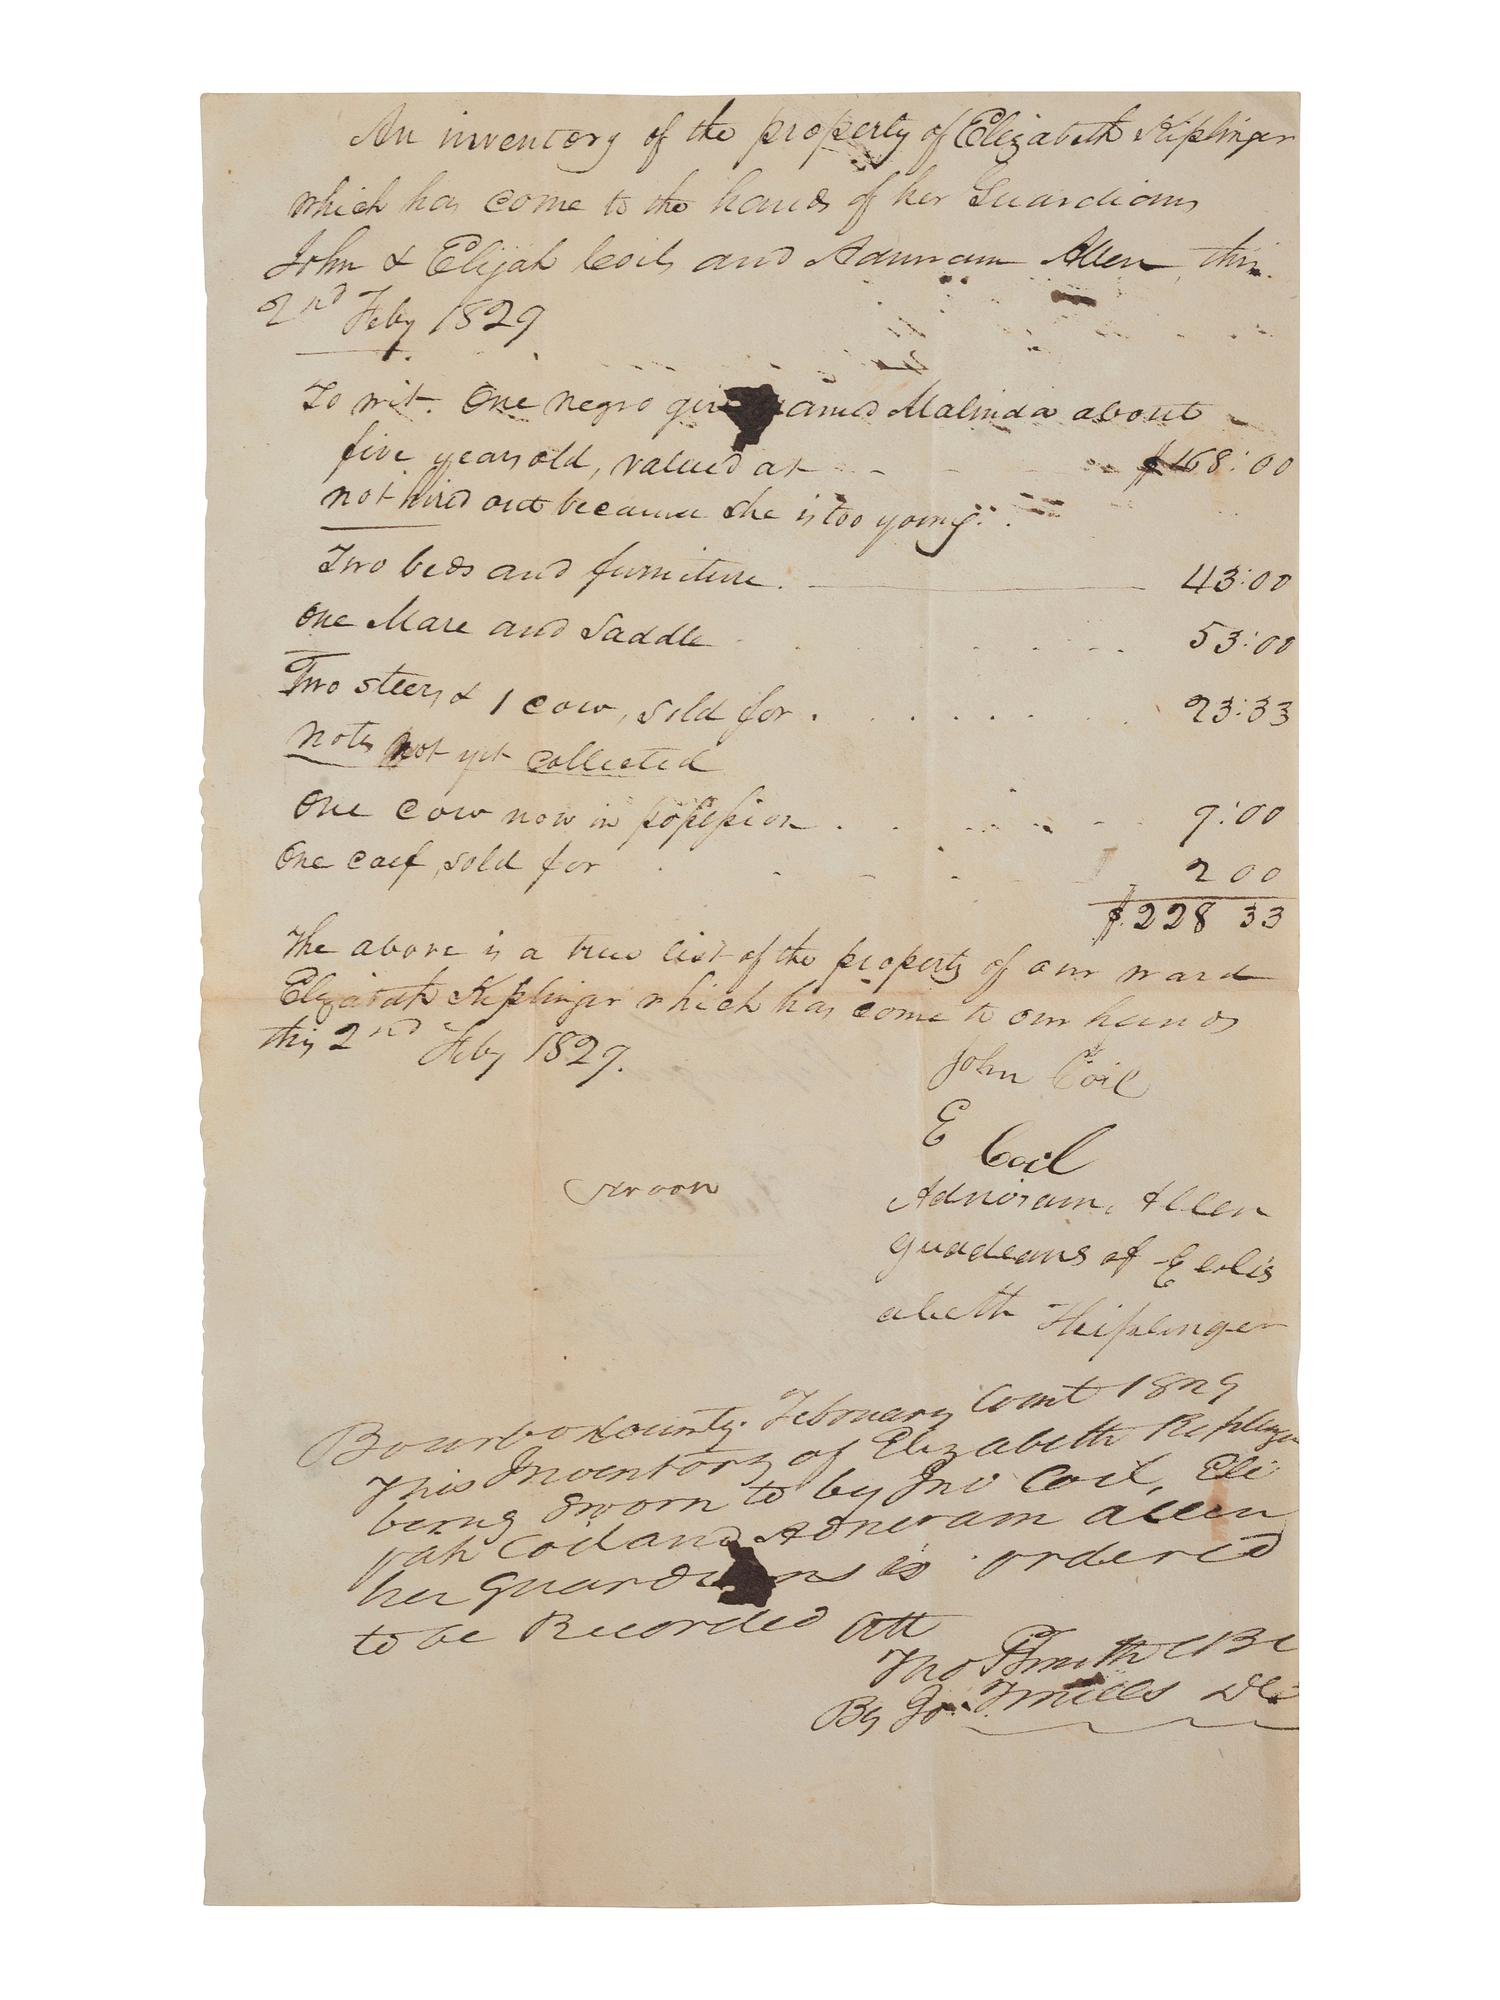 An inventory of the property of Elizabeth Kiplinger
which has come to the hands of her Guardians
John & Elijah Coils and Adnuram Allen, this
2nd Feby 1829
To wit. One negro gir named Malinda about
five years old, valued at $168:00
not hired out because she is too young.
Two beds and furniture. 43:00
One Mare and Saddle 53:00
Two steers & 1 cow, sold for 23:33
Notes not yet collected
One cow now in possession 9:00
One calf, sold for 2 00
$228 33
The above is a true list of the property of our ward
Elizabeth Kiplingar which has come to our hands
this 2nd Feby 1829.
John Coil
E Coil
sworn
Adnoram, Allen
guadeans of Eelis
abeth Heiplinger
Bourbon County. February Court 1829
This Inventory of Elizabeth Kiplinger
being sworn to by Jno Coil, Eli
jah Coil and Adneram allen
her guardians is ordered
to be Recorded Att
Tho P Smith CBC
By Jo. Mills DC